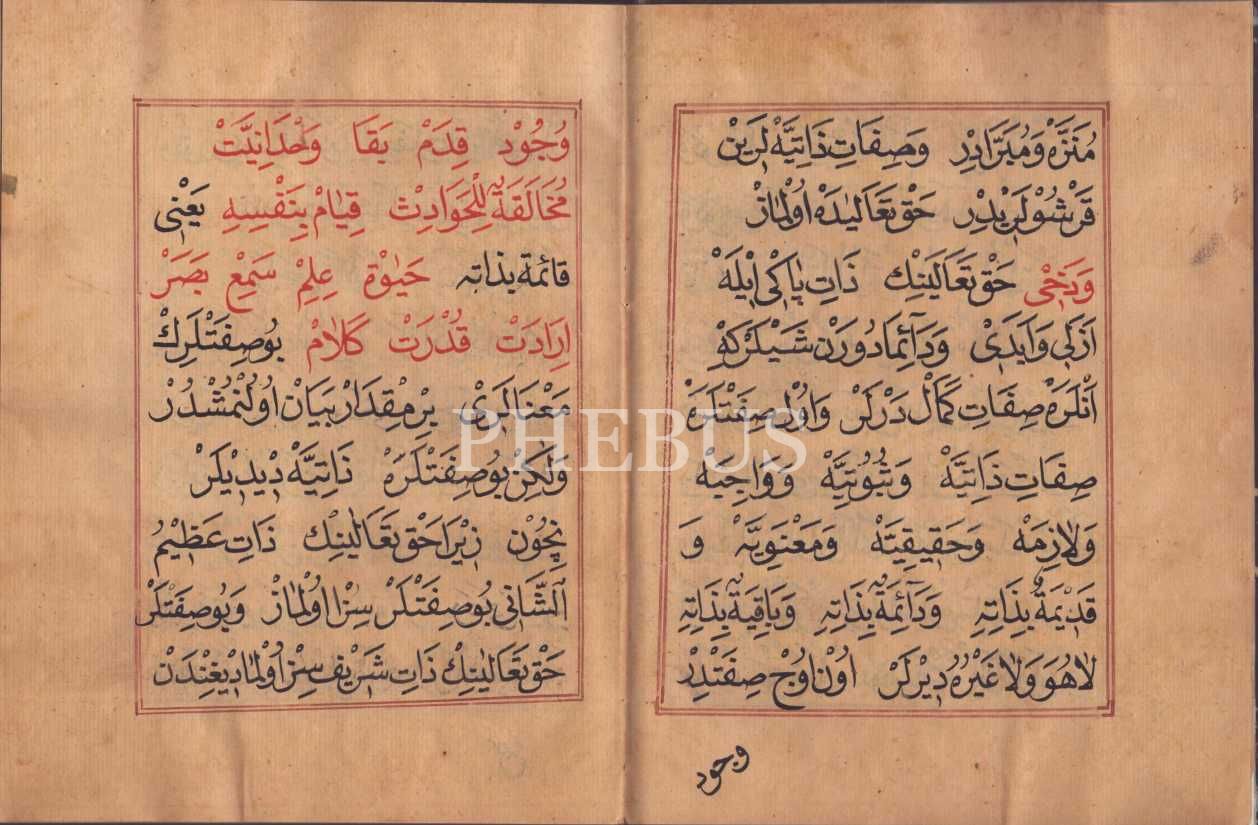 مُنَزَّهْ وَمُبَرَّادِرْ وَصِفَاتِ ذَاتِيَّهْ لَرِينْ
قَرْشُولَرِيدِرْ حَقْ تَعَالَيَدَهْ اُولْمَازْ
وَدَخِى حَقْ تَعَالَينِكْ ذَاتِ پَاكِى اِيلَهْ
اَزَلِى وَاَبَدِى وَدَآئِمَا دُورَنْ شَيْلَرْكَهْ
اَنْلَرَهْ صِفَاتِ كَمَالْ دَرْلَرْ وَاُولْ صِفَتْلَرَهْ
صِفَاتِ ذَاتِيَّهْ وَثُبُوتِيَّهْ وَوَاجِبَهْ
وَلَازِمَهْ وَحَقِيقِيَّهْ وَمَعْنَوِيَّهْ وَ
قَدِيمَةٌ بِذَاتِهِ وَدَآئِمَةٌ بِذَاتِهِ وَبَاقِيَةٌ بِذَاتِهِ
لَاهُوَ وَلَا غَيْرُهُ دِيرْلَرْ اُونْ اُوچْ صِفَتْدِرْ
وجود
وُجُودْ قِدَمْ بَقَا وَحْدَانِيَّتْ
مُخَالَفَةٌ لِلْحَوَادِثْ قِيَامْ بِنَفْسِهِ يَعْنِى
قائمة بذاته حَيٰوةْ عِلِمْ سَمِعْ بَصَرْ
اِرَادَتْ قُدْرَتْ كَلَامْ بُو صِفَتْلَرِكْ
مَعْنَالَرِى بِرْ مِقْدَارْ بَيَانْ اُولُنْمُشْدُرْ
وَلٰكِنْ بُو صِفَتْلَرَهْ ذَاتِيَّهْ دِيدِيلَرْ
نِچُونْ زِيرَا حَقْ تَعَالَينِكْ ذَاتِ عَظِيمُ
الشَّانِى بُو صِفَتْلَرْ سِزْ اُولْمَازْ وَبُو صِفَتْلَرْ
حَقْ تَعَالَينِكْ ذَاتِ شَرِيفْ سِزْ اُولْمَادِيغِنْدَنْ
PHEBUS